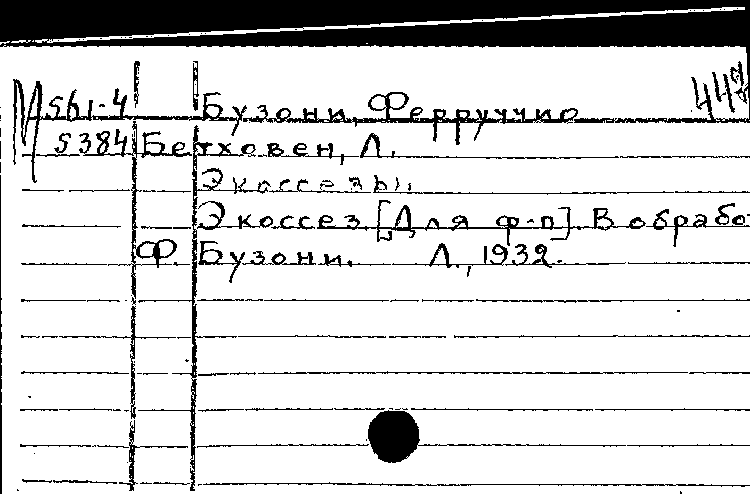 М 561-4 Бузони, Ферруччио 447
5384 Бетховен, Л.
Экоссезы.
Экоссез. [Для ф-п]. В обрабо
Ф. Бузони. Л., 1932.